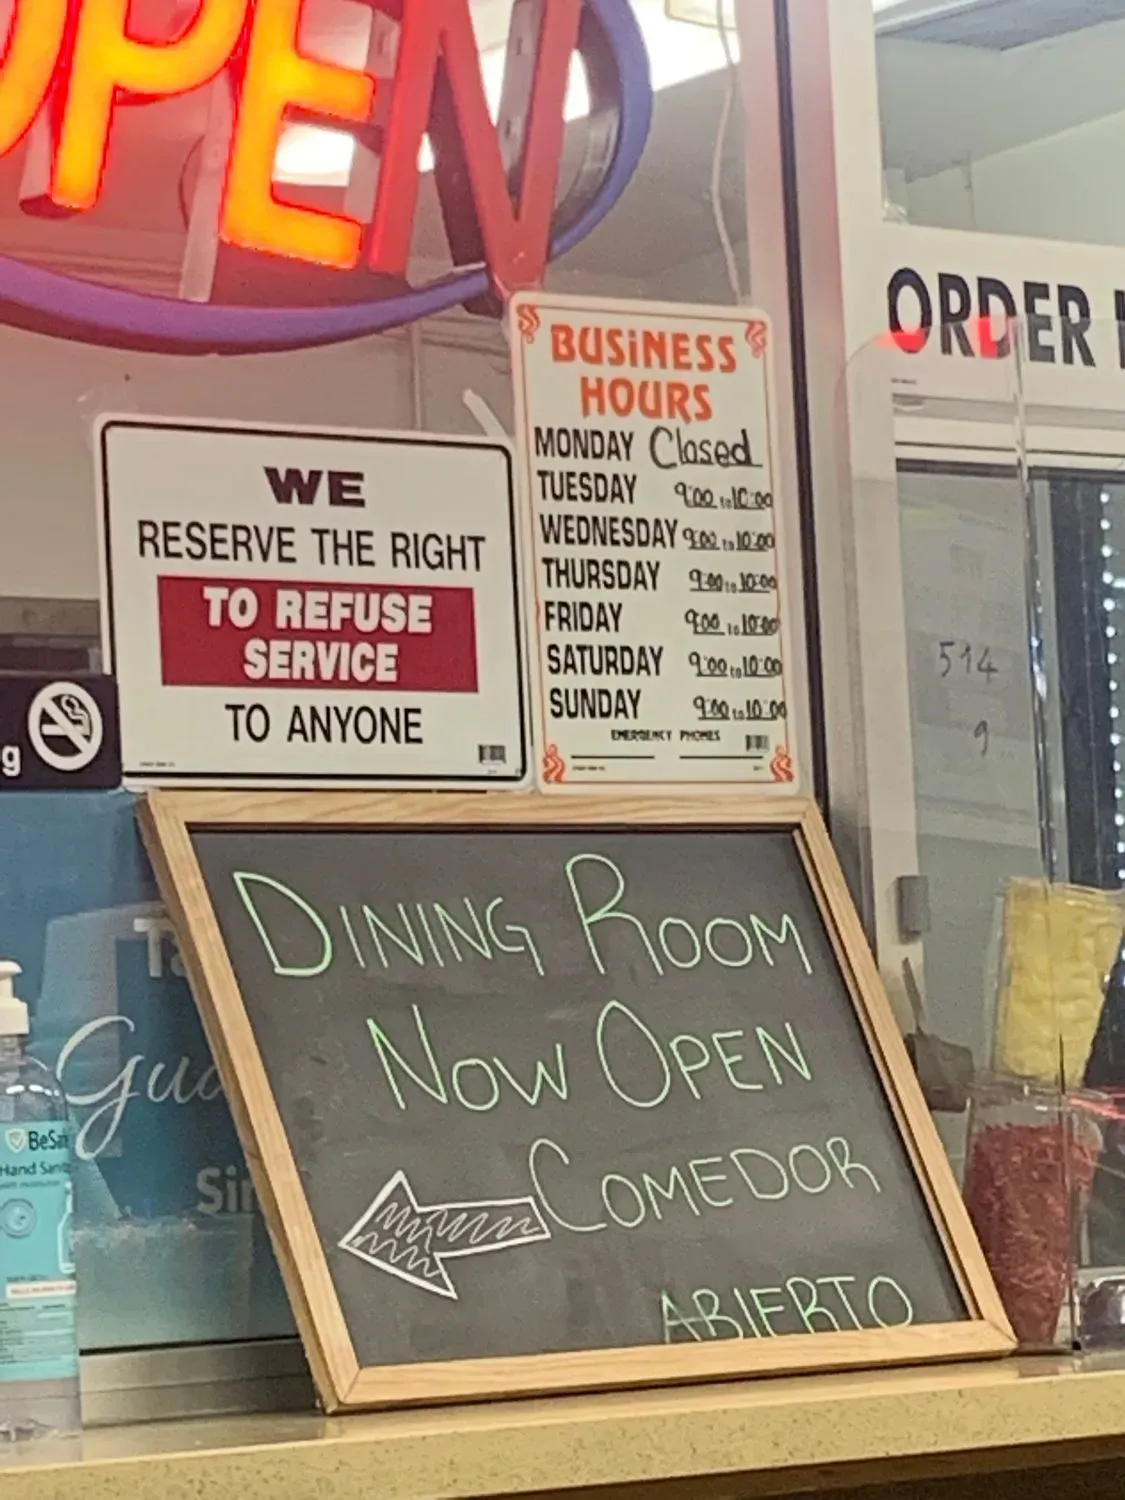 OPEN
ORDER
BUSINESS
HOURS
MONDAY Closed
TUESDAY 9:00 to 10:00
WEDNESDAY 9:00 to 10:00
THURSDAY 9:00 to 10:00
FRIDAY 9:00 to 10:00
SATURDAY 9:00 to 10:00
SUNDAY 9:00 to 10:00
EMERGENCY PHONES
WE
RESERVE THE RIGHT
TO REFUSE
SERVICE
TO ANYONE
514
9
g
DINING ROOM
NOW OPEN
COMEDOR
ABIERTO
Gua
Sin
BeSafe
Hand Sanit